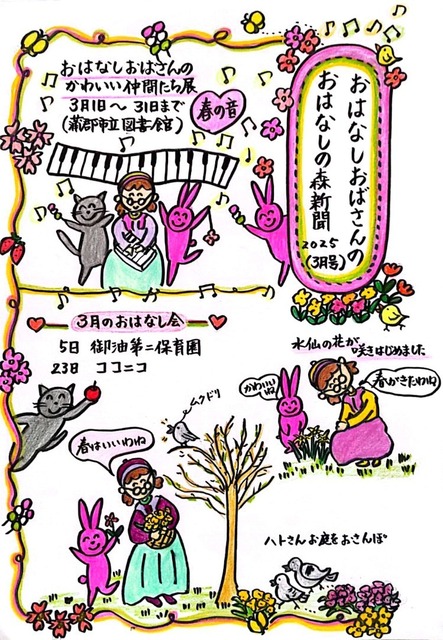 おはなしおばさんの
おはなしの森新聞
2025
(3月号)
おはなしおばさんの
かわいい仲間たち展
3月1日〜31日まで
(蒲郡市立図書館)
春の音
3月のおはなし会
5日 御油第二保育園
23日 ココニコ
水仙の花が
咲きはじめました
かわいい
ね
春がきたわね
ムクドリ
春はいいわね
ハトさんお庭をおさんぽ